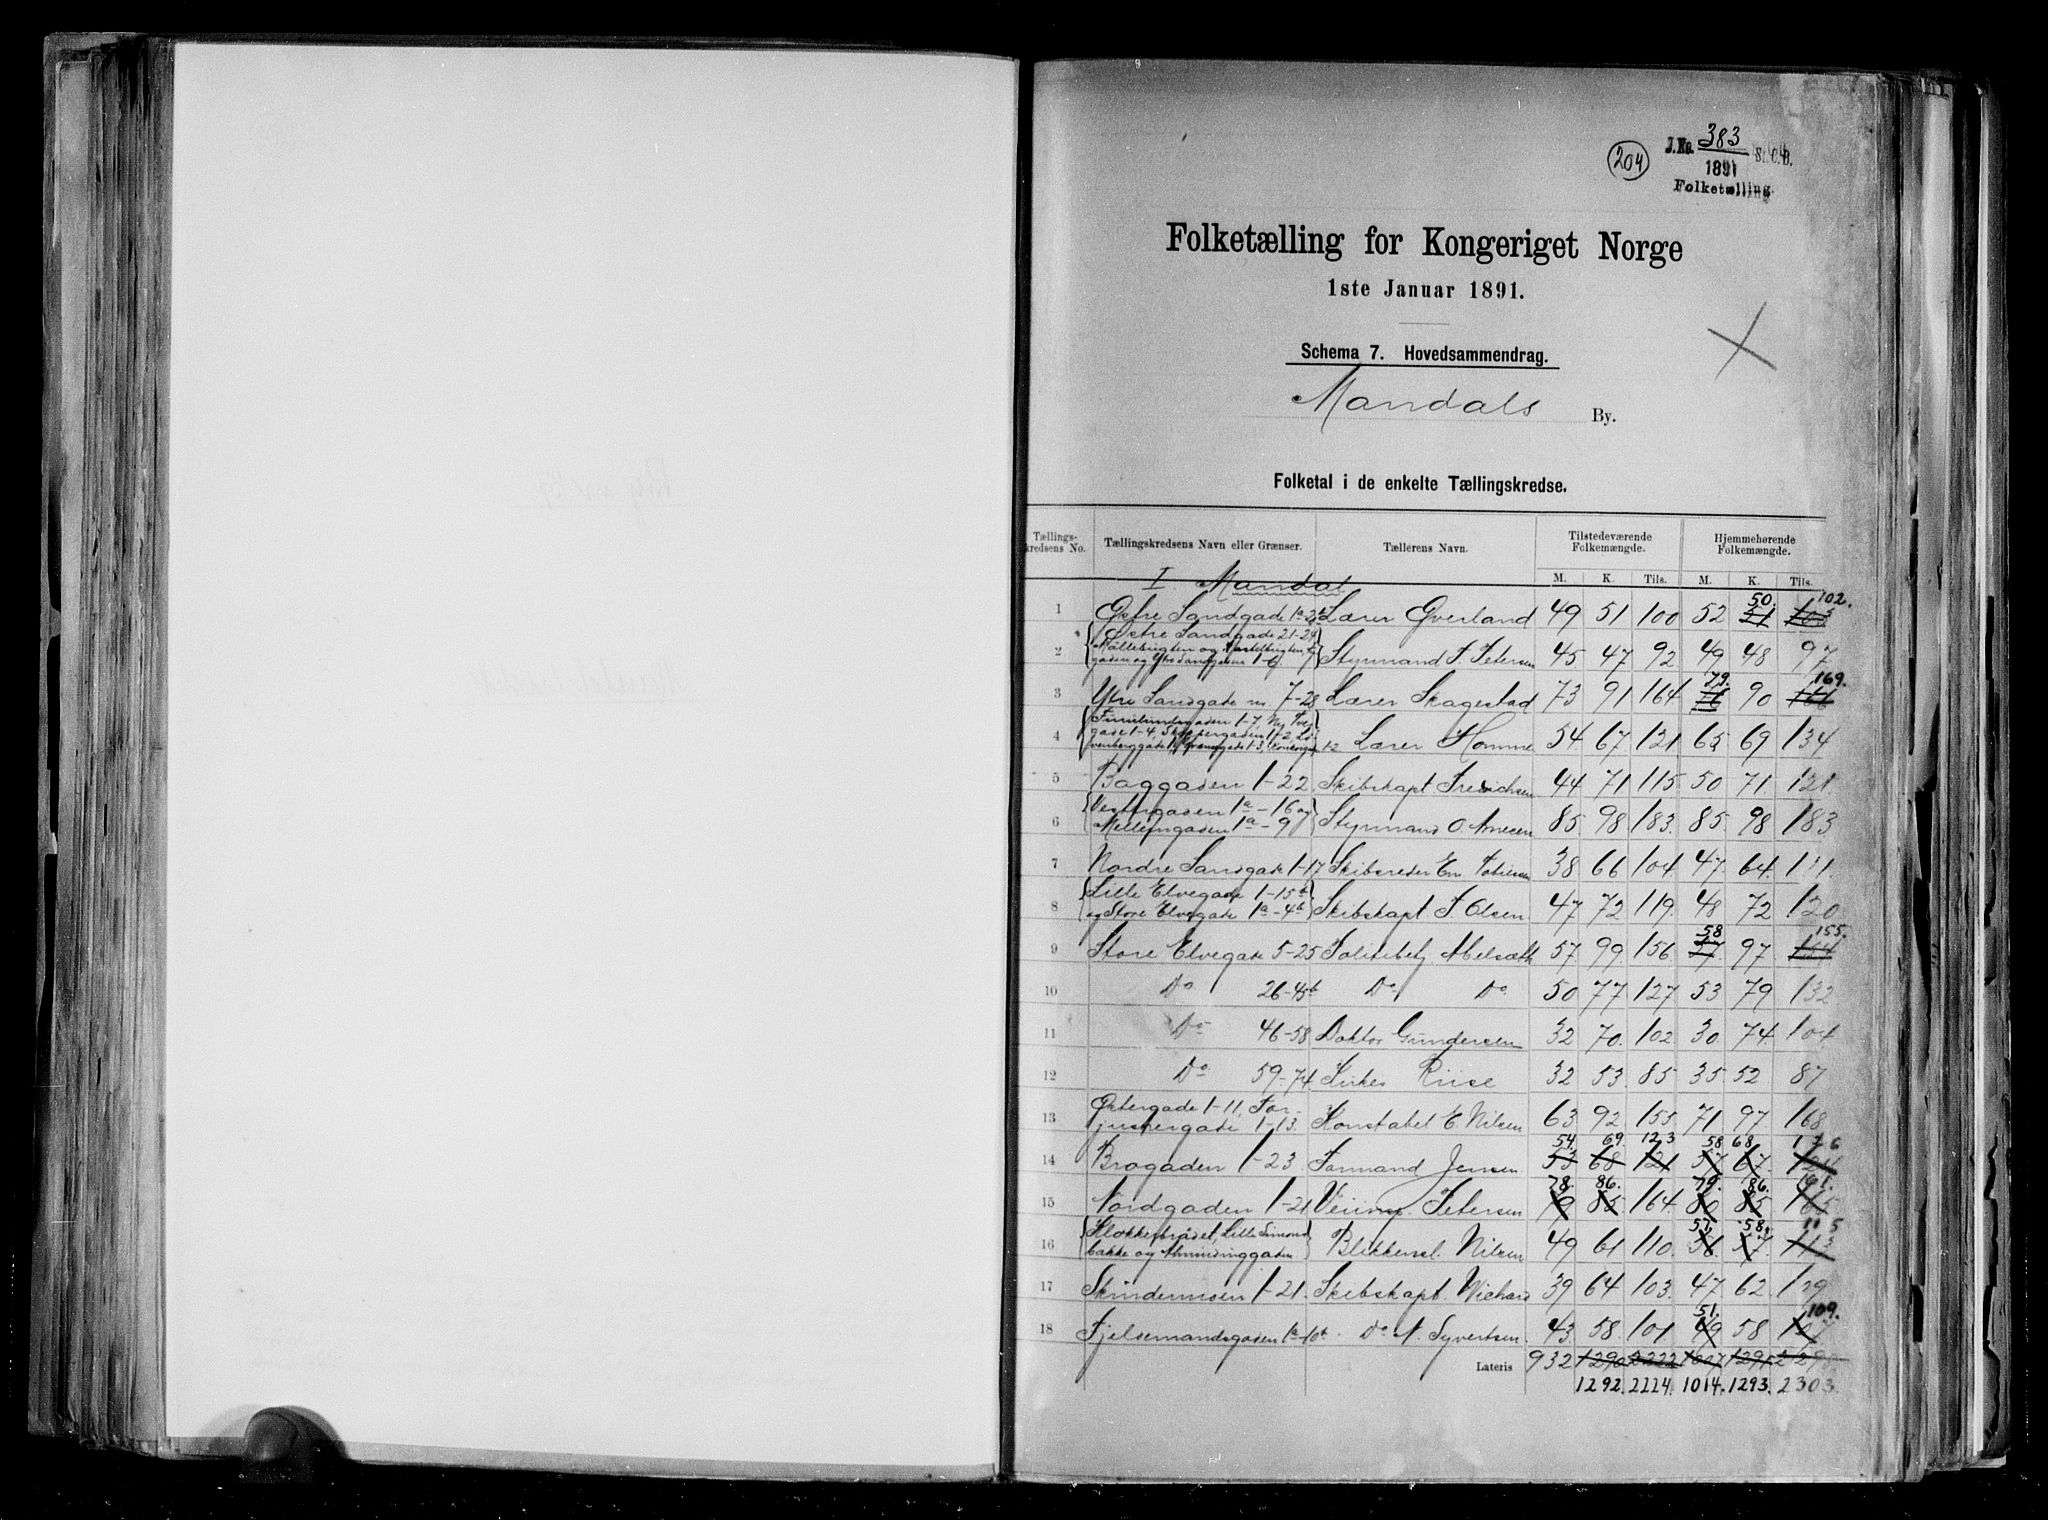 204
J.No. 383 St. C. B.
1891
Folketælling.
Folketælling for Kongeriget Norge
1ste Januar 1891.
Schema 7. Hovedsammendrag.
Mandals By.
Folketal i de enkelte Tællingskredse.
Tællings-kredsens No. Tællingskredsens Navn eller Grænser. Tællerens Navn. Tilstedeværende Folkemængde. Hjemmehørende Folkemængde.
M. K. Tils. M. K. Tils.
I. Mandal
50. 102.
1 Østre Sandgade Lærer Øverland 49 51 100 52 51 103
Østre Sandgade 21-29
2 Styrmand F. Petersen 45 47 92 49 48 97
gaden og Ytre Sandgaden 1-6
79. 169.
3 Ytre Sandgade 7-28 Lærer Skagestad 73 91 164 76 90 166
4 Lærer Homme 54 67 121 65 69 134
5 Baggaden 1-22 Skibskapt Fredrichsen 44 71 115 50 71 121
Vestergaden 1a-16 og
6 Mellemgaden 1a-9 Styrmand O. 85 98 183 85 98 183
7 Nordre Sandgade 1-17 Skibsreder Em. 38 66 104 47 64 111
Lille Elvegade 1-15b
8 og Store Elvegade 1a-4b Skibskapt. F. Olsen 47 72 119 48 72 120
58 155.
9 Store Elvegade 5-25 57 99 156 57 97 154
10 Do 26-45b Do Do 50 77 127 53 79 132
11 Do 46-58 Doktor Gundersen 32 70 102 30 74 104
12 Do 59-74 Riise 32 53 85 35 52 87
Østergade 1-11, Tor-
13 1-13. Konstabel E. Nilsen 63 92 155 71 97 168
54. 69. 123 58 68 126
14 Brogaden 1-23 Formand Jensen 53 68 121 57 67 124
78. 86. 79. 86.
15 Nordgaden 1-21 Petersen 79 85 164 80 85 165
57. 58. 115
16 bakke og Almindinggaden Blikkensl. Nilsen 49 61 110 56 57 113
17 1-21. Skibskapt. 39 64 103 47 62 109
51. 109.
18 Do N. Syvertsen 43 58 101 49 58 107
Lateris 932 1290 2222 1007 1291
1292. 2224. 1014. 1293. 2303.